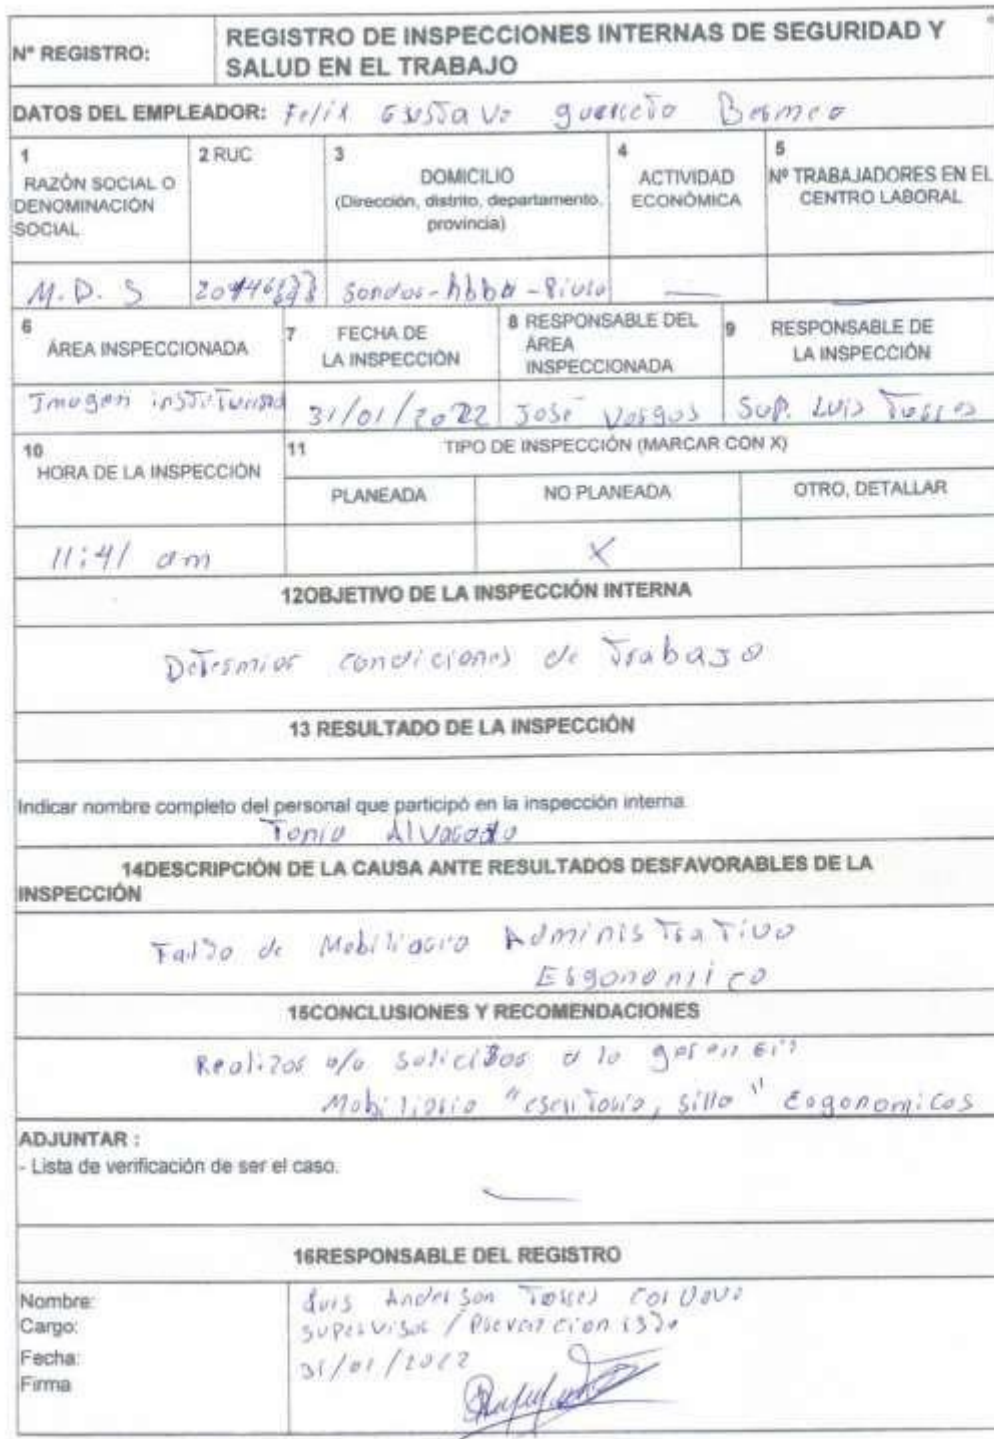 N° REGISTRO:
REGISTRO DE INSPECCIONES INTERNAS DE SEGURIDAD Y
SALUD EN EL TRABAJO
DATOS DEL EMPLEADOR: Felix Gustavo
1
RAZÓN SOCIAL O
DENOMINACIÓN
SOCIAL
2 RUC
3
DOMICILIO
(Dirección, distrito, departamento,
provincia)
4
ACTIVIDAD
ECONÓMICA
5
Nº TRABAJADORES EN EL
CENTRO LABORAL
M.D.S
6
ÁREA INSPECCIONADA
7
FECHA DE
LA INSPECCIÓN
8 RESPONSABLE DEL
ÁREA
INSPECCIONADA
9
RESPONSABLE DE
LA INSPECCIÓN
Imagen institucional
31/01/2022
José Vargas
Sup. Luis Torres
10
HORA DE LA INSPECCIÓN
11
TIPO DE INSPECCIÓN (MARCAR CON X)
PLANEADA
NO PLANEADA
OTRO, DETALLAR
11:41 am
X
12OBJETIVO DE LA INSPECCIÓN INTERNA
condiciones de Trabajo
13 RESULTADO DE LA INSPECCIÓN
Indicar nombre completo del personal que participó en la inspección interna.
Alvarado
14DESCRIPCIÓN DE LA CAUSA ANTE RESULTADOS DESFAVORABLES DE LA
INSPECCIÓN
de Mobiliario Administrativo
Ergonomico
15CONCLUSIONES Y RECOMENDACIONES
Realizar y/o solicitar a la
Mobiliario "escritorio, silla" Ergonomicos
ADJUNTAR :
- Lista de verificación de ser el caso.
16RESPONSABLE DEL REGISTRO
Nombre:
Luis Anderson Torres Cordova
Cargo:
Supervisor / Prevencionista
Fecha:
31/01/2022
Firma